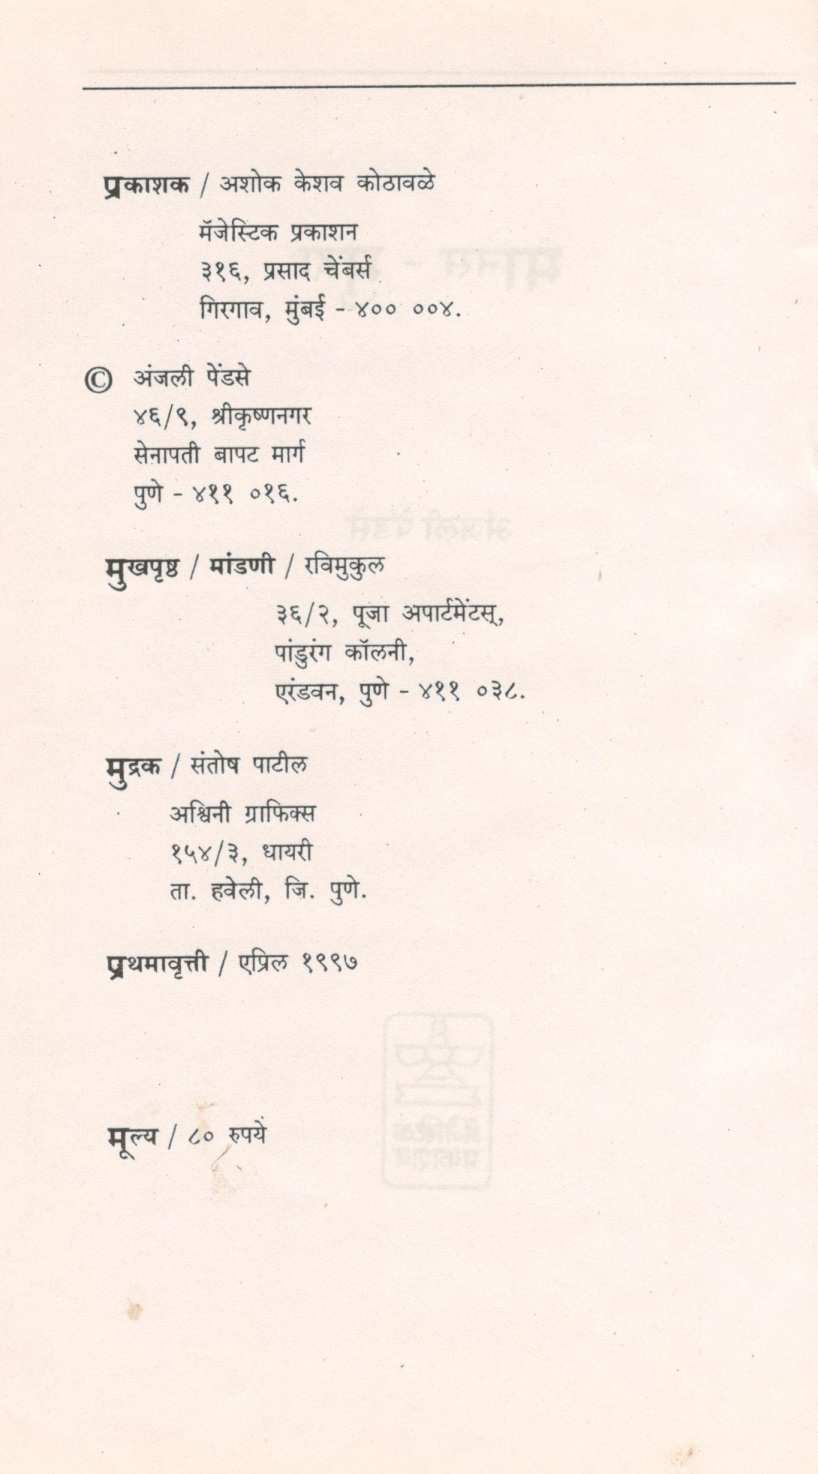 प्रकाशक / अशोक केशव कोठावळे
मॅजेस्टिक प्रकाशन
३१६, प्रसाद चेंबर्स
गिरगाव, मुंबई - ४०० ००४.
© अंजली पेंडसे
४६/९, श्रीकृष्णनगर
सेनापती बापट मार्ग
पुणे - ४११ ०१६.
मुखपृष्ठ / मांडणी / रविमुकुल
३६/२, पूजा अपार्टमेंटस्,
पांडुरंग कॉलनी,
एरंडवन, पुणे - ४११ ०३८.
मुद्रक / संतोष पाटील
अश्विनी ग्राफिक्स
१५४/३, धायरी
ता. हवेली, जि. पुणे.
प्रथमावृत्ती / एप्रिल १९९७
मूल्य / ८० रुपये